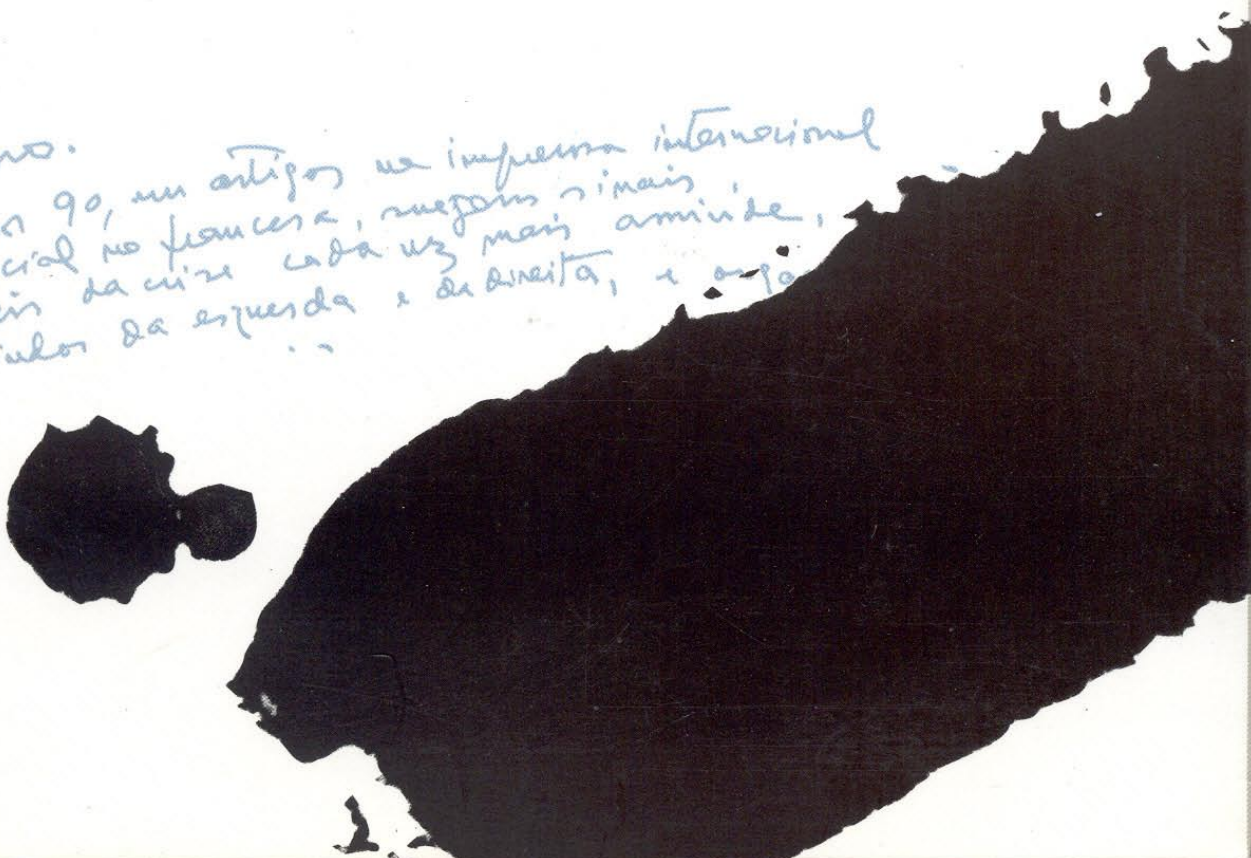 90, em artigos na imprensa internacional
cial na francesa, surgem sinais
da crise cada vez mais amiúde,
da esquerda e da direita, e